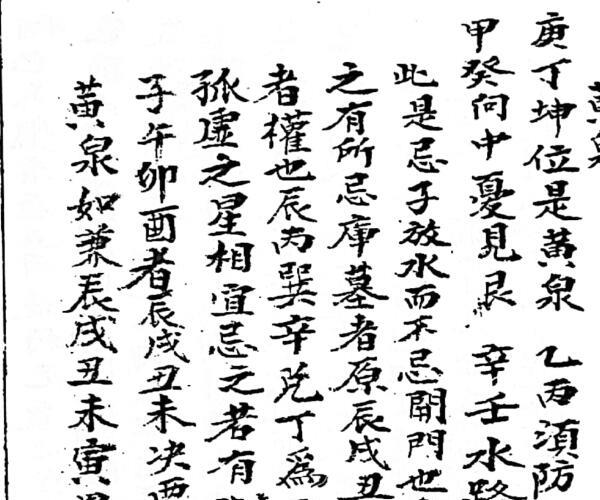 黃泉
庚丁坤位是黃泉 乙丙須防
甲癸向中憂見艮 辛壬水路
此是忌子放水而不忌開門也
之有所忌庫墓者原辰戌丑
者權也辰丙巽辛兌丁為
孤虛之星相宜忌之若有
子午卯酉者辰戌丑未決
黃泉如兼辰戌丑未寅